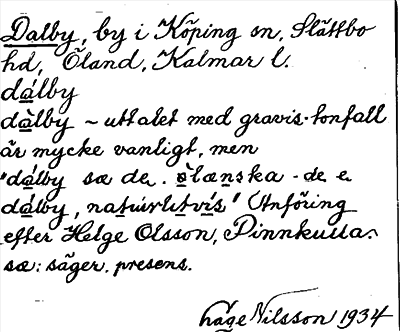 Dalby, by i Köping sn, Slättbo
hd, Öland, Kalmar l.
dálby
dàlby ~ uttalet med gravis-tonfall
är mycke vanligt, men
"dálby sæ de. ølænska - de e
dálby, natúrlitvís" Anföring
efter Helge Olsson, Pinnkulla.
sæ: säger. presens.
Åge Nilsson 1934